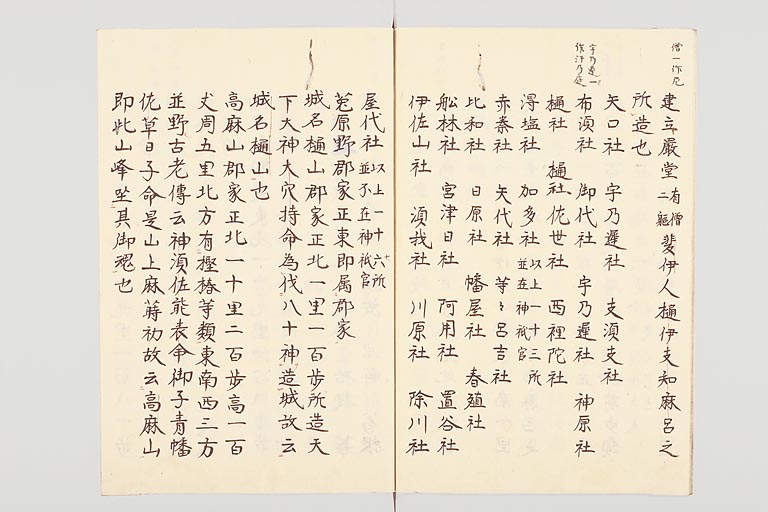 僧一作尼
建立嚴堂有僧二軀斐伊人樋伊支知麻呂之
所造也
宇乃遲一作汙乃遲
矢口社 宇乃遲社 支須支社
布須社 御代社 宇乃遲社 神原社
樋社 樋社 佗世社 西裡陀社
淂塩社 加多社以上一十三所並在神祇官
赤秦社 矢代社 等々呂吉社
比和社 日原社 幡屋社 春殖社
舩林社 宮津日社 阿用社 置谷社
伊佐山社 須我社 川原社 除川社
屋代社以上一十六所並不在神祇官
菟原野郡家正東即属郡家
城名樋山郡家正北一里一百歩所造天
下大神大穴持命為伐八十神造城故云
城名樋山也
高麻山郡家正北一十里二百歩高一百
丈周五里北方有樫椿等類東南西三方
並野古老傳云神須佐能袁命御子青幡
佐草日子命是山上麻蒔初故云高麻山
即此山峰坐其御魂也